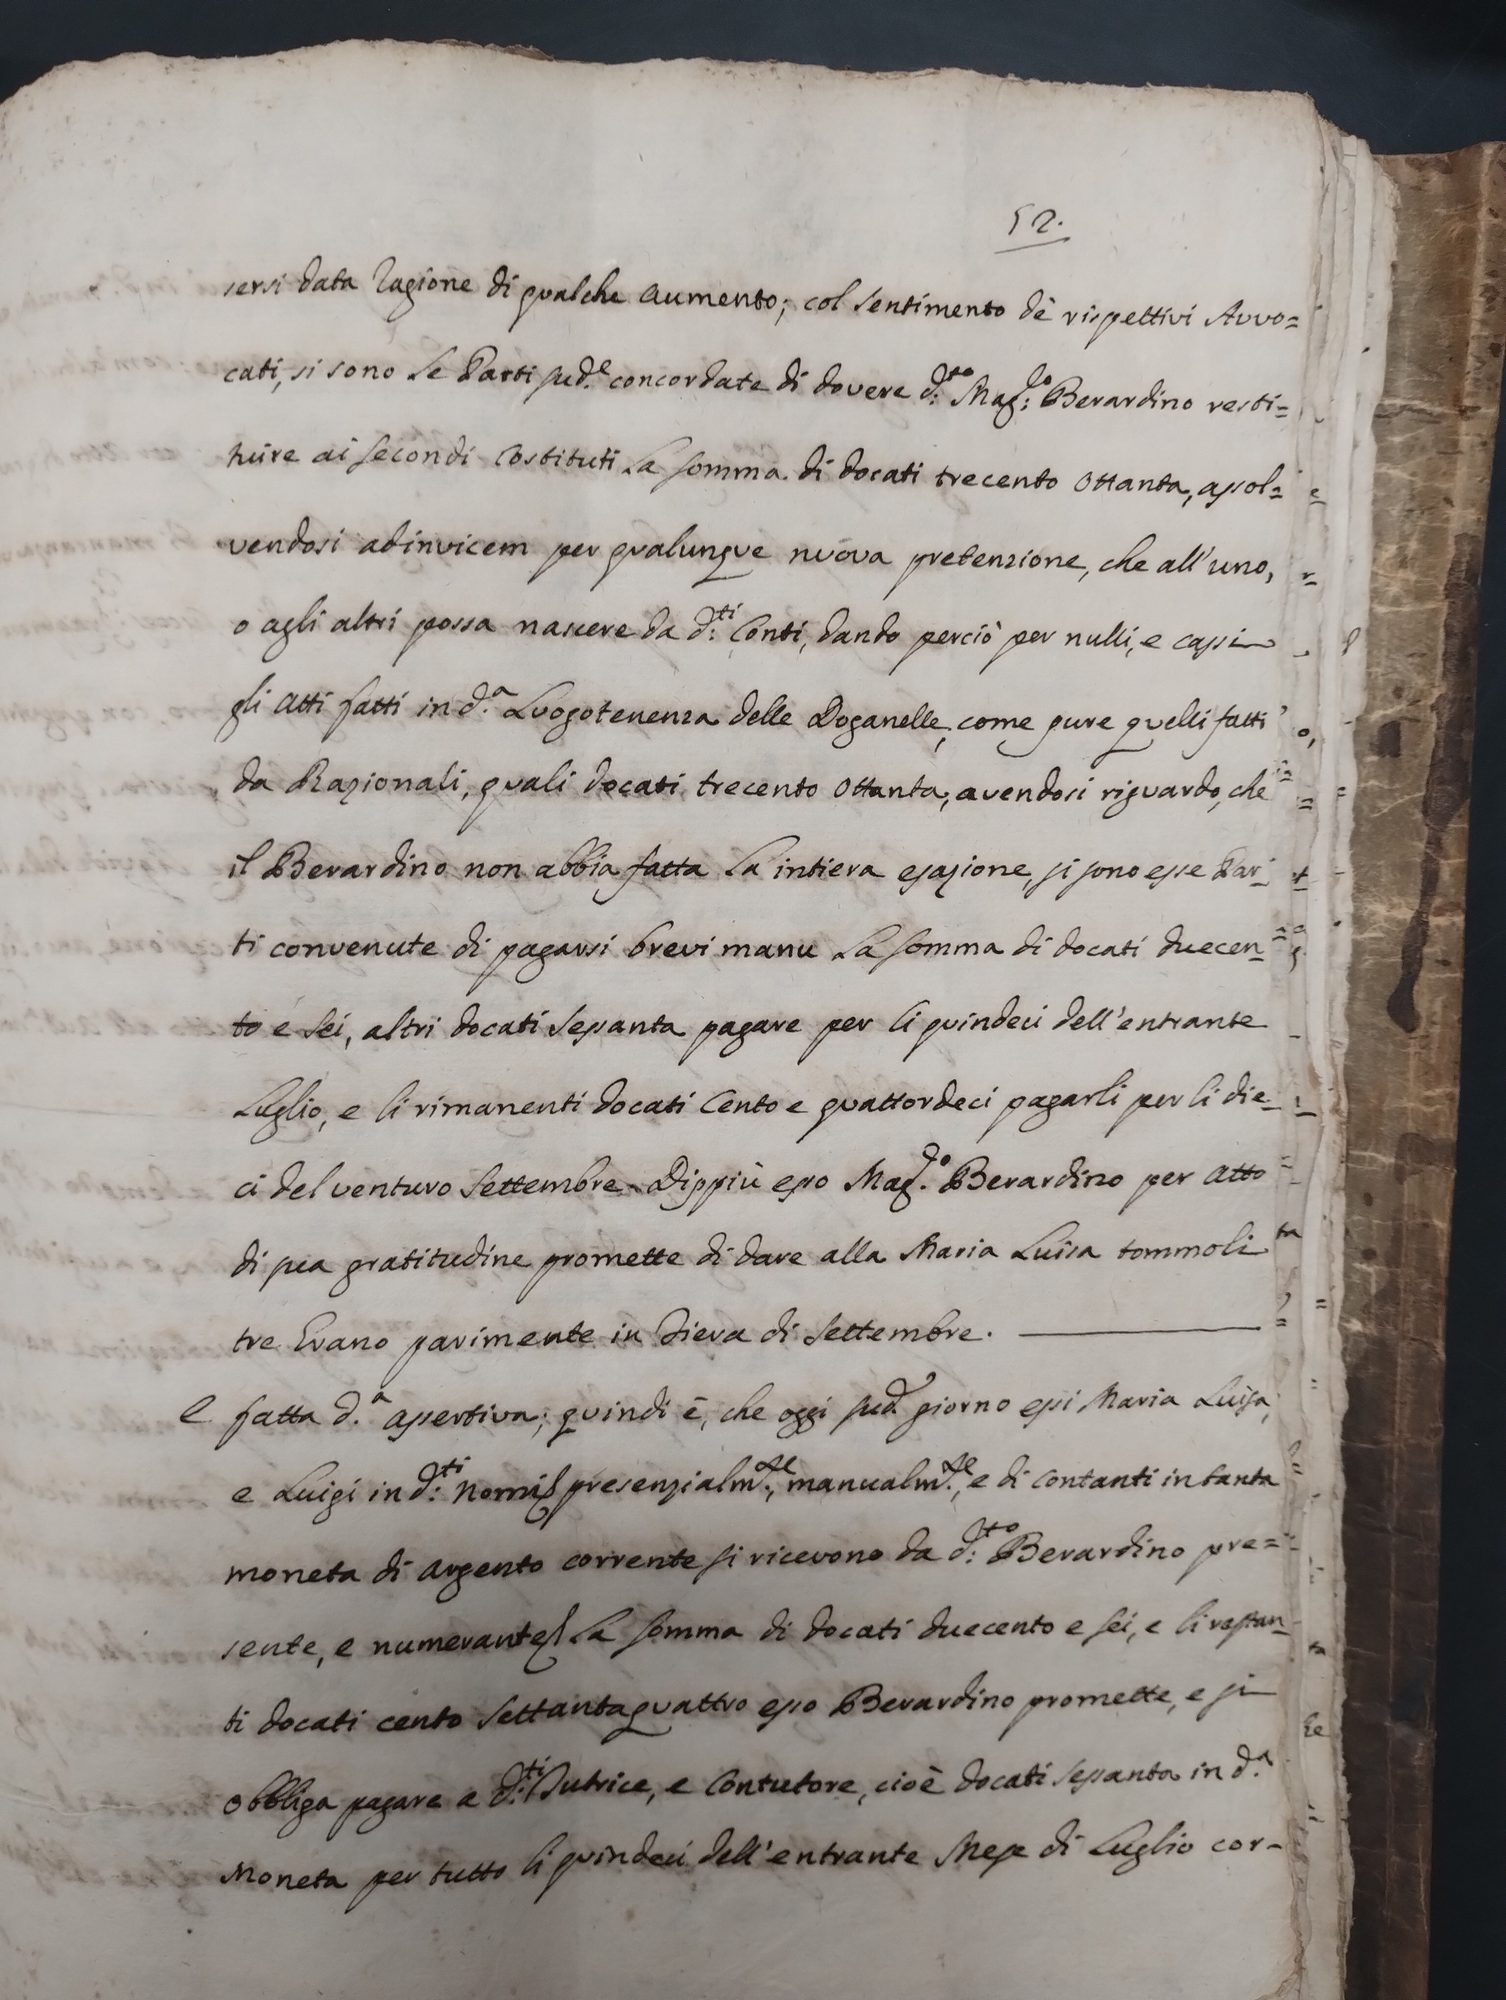 52.
sersi data ragione di qualche aumento; col sentimento dè rispettivi Avvo=
cati, si sono le Parti sud.e concordate di dovere d:to Mag:co Berardino resti=
tuire ai secondi Costituti la somma di docati trecento ottanta, assol=
vendosi adinvicem per qualunque nuova pretenzione, che all'uno,
o agli altri possa nascere da d:ti Conti, dando perciò per nulli, e cassi
gli atti fatti in d.a Luogotenenza delle Doganelle, come pure quelli fatti
da Razionali, quali docati trecento ottanta, avendosi riguardo, che
il Berardino non abbia fatta la intiera esazione, si sono esse Par=
ti convenute di pagarsi brevi manu la somma di docati duecen=
to e sei, altri docati sessanta pagare per li quindeci dell'entrante
Luglio, e li rimanenti docati Cento e quattordeci pagarli per li die=
ci del venturo Settembre. Dippiù esso Mag.co Berardino per atto
di sua gratitudine promette di dare alla Maria Luisa tommoli
tre Grano parimente in Fiera di Settembre.
E fatta d.a assertiva; quindi è, che oggi sud. giorno essi Maria Luisa,
e Luigi in d:ti Nomi presenzialm.te, manualm.te, e di contanti in tanta
moneta di argento corrente si ricevono da d:to Berardino pre=
sente, e numerante la somma di docati duecento e sei, e li restan=
ti docati cento settantaquattro esso Berardino promette, e si
obbliga pagare a d:ti Tutrice, e Contutore, cioè docati sessanta in d.a
Moneta per tutto li quindeci dell'entrante Mese di Luglio cor=